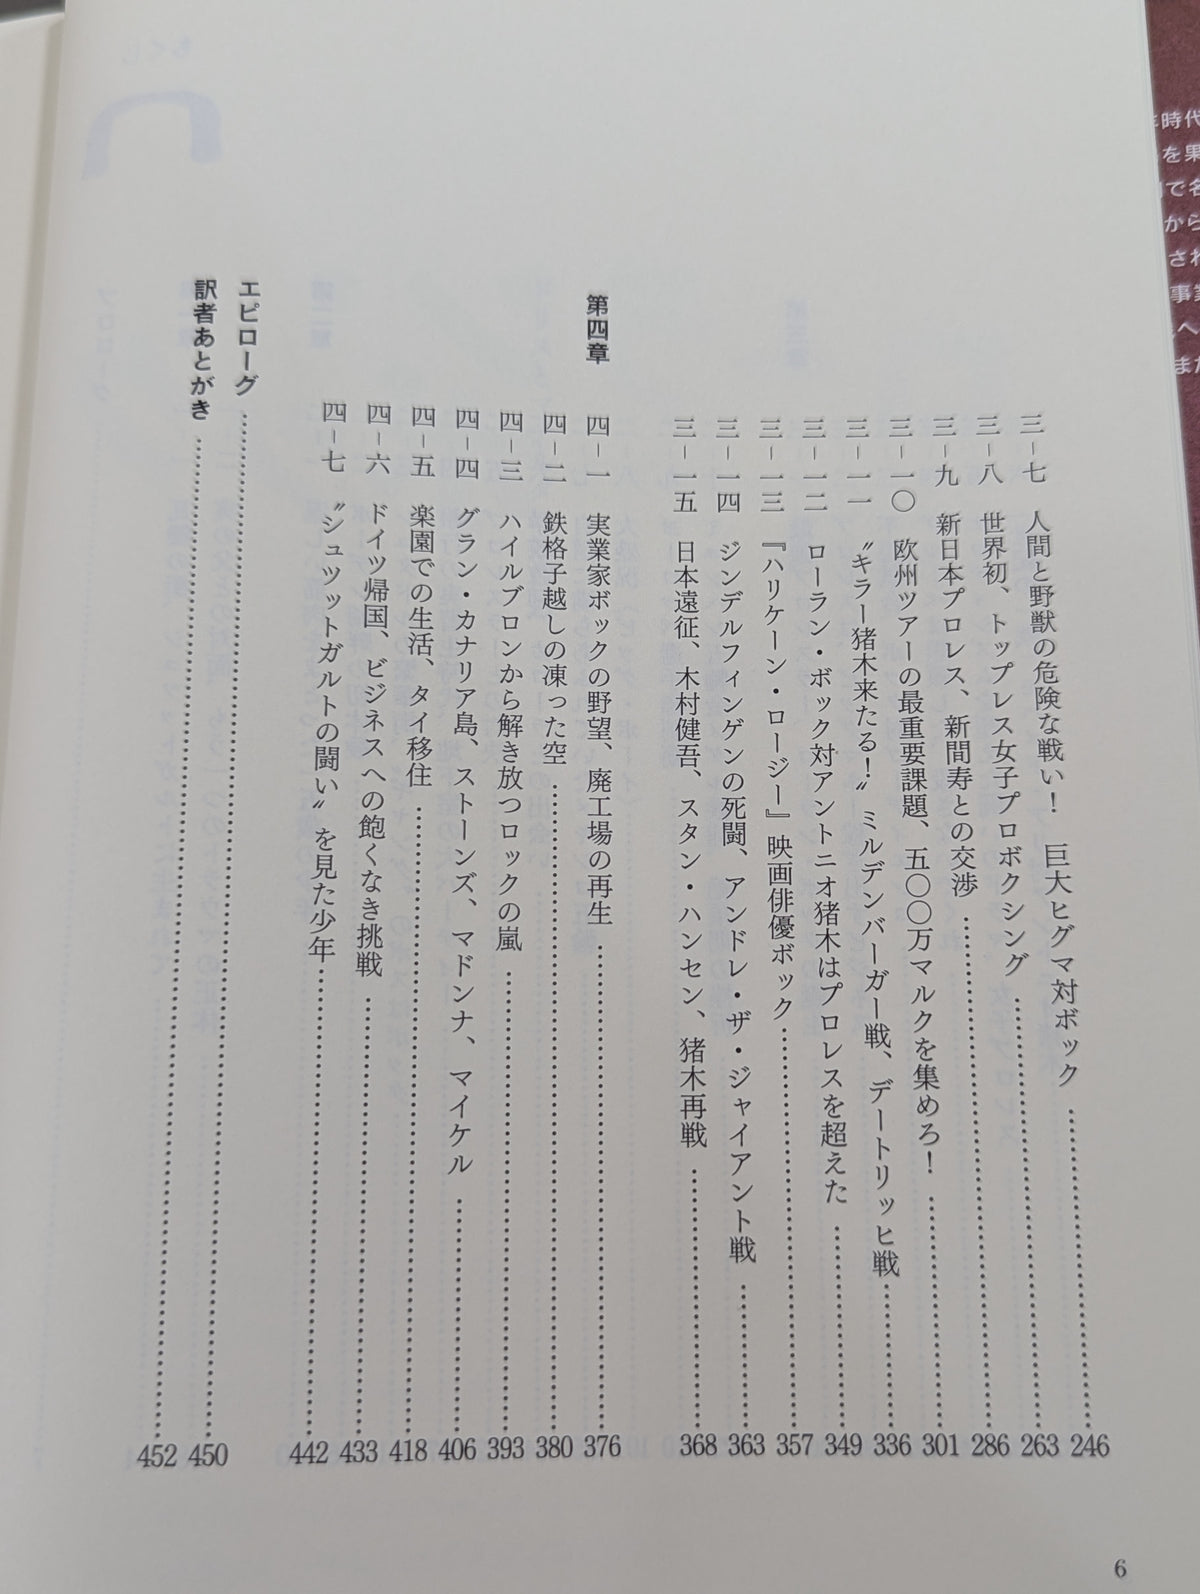 三-七 人間と野獣の危険な戦い! 巨大ヒグマ対ボック……246
三-八 世界初、トップレス女子プロボクシング……263
三-九 新日本プロレス、新間寿との交渉……286
三-一〇 欧州ツアーの最重要課題、五〇〇万マルクを集めろ!……301
三-一一 〝キラー猪木来たる!〟ミルデンバーガー戦、デートリッヒ戦……336
三-一二 ローラン・ボック対アントニオ猪木はプロレスを超えた……349
三-一三 『ハリケーン・ロージー』映画俳優ボック……357
三-一四 ジンデルフィンゲンの死闘、アンドレ・ザ・ジャイアント戦……363
三-一五 日本遠征、木村健吾、スタン・ハンセン、猪木再戦……368
第四章
四-一 実業家ボックの野望、廃工場の再生……376
四-二 鉄格子越しの凍った空……380
四-三 ハイルブロンから解き放つロックの嵐……393
四-四 グラン・カナリア島、ストーンズ、マドンナ、マイケル……406
四-五 楽園での生活、タイ移住……418
四-六 ドイツ帰国、ビジネスへの飽くなき挑戦……433
四-七 〝シュツットガルトの闘い〟を見た少年……442
エピローグ……450
訳者あとがき……452
6
時代
を果
で名
から
され
事業
へ
また